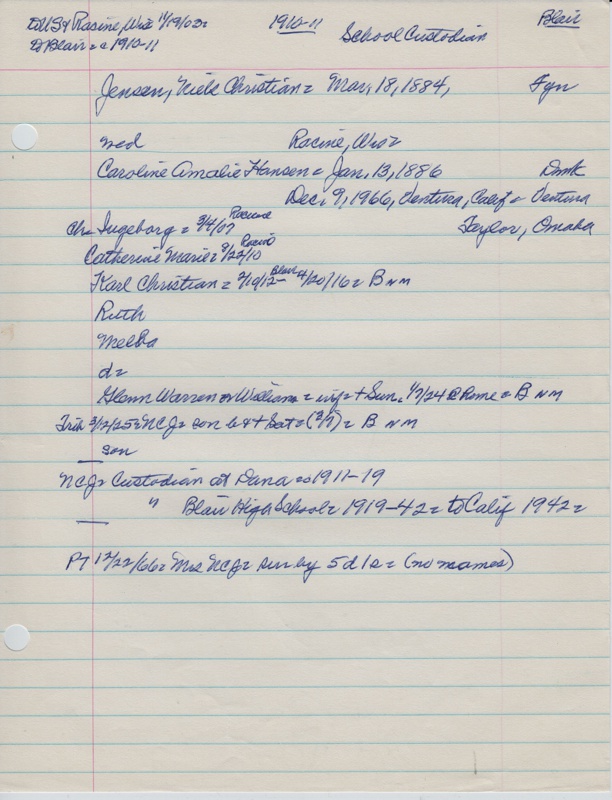 DUS & Racine, Wis 11/19/02= 1910-11 Blair
D Blair = c 1910-11 School Custodian
Jensen, Niels Christian = Mar, 18, 1884, Fyn
med Racine, Wis =
Caroline Amalie Hansen = Jan, 13, 1886 Dmk
Dec, 9, 1966, Ventura, Calif = Ventura
Ch = Ingeborg = 3/4/07 Racine Taylor, Omaha
Catherine Marie = 8/22/10 Racine
Karl Christian = 2/10/12 - Blair 4/20/16 = B nm
Ruth
Melba
d =
Glenn Warren or William = inf = + Sun, 1/7/24 @ home = B nm
Trib 3/12/25 = NCJ = son b & + Sat = (3/7) = B nm
son
NCJ = Custodian at Dana = 1911-19
" Blair High School = 1919-42 = to Calif 1942 =
PT 12/22/66 = Mrs NCJ = sur by 5 d 1 s = (no names)